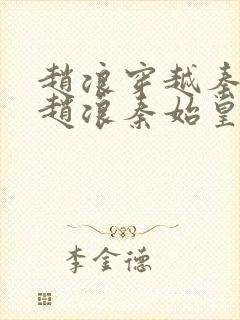 趙浪穿越秦
趙浪秦始皇
李金德